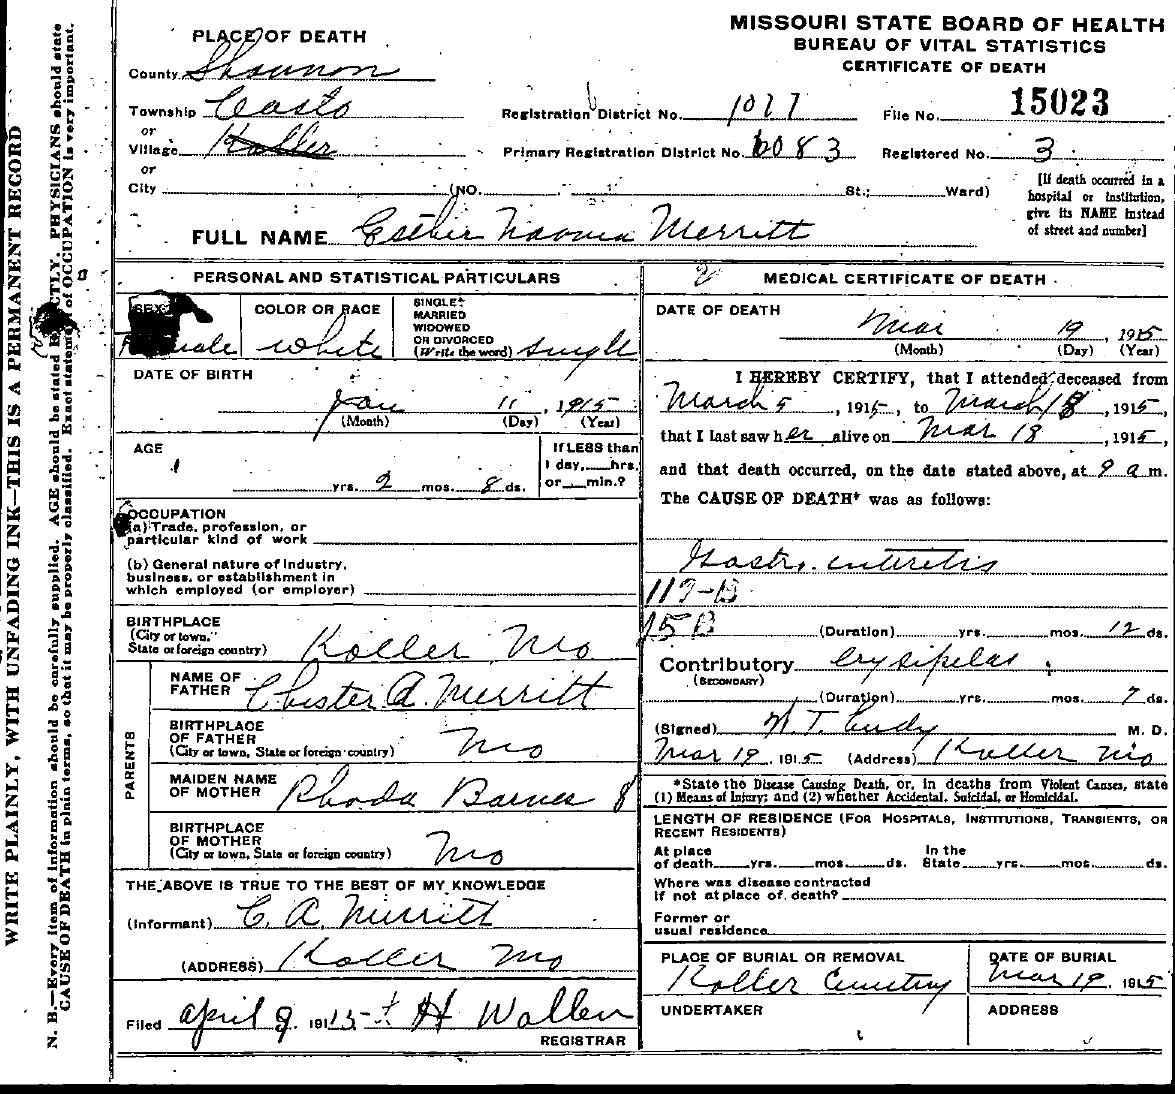 MISSOURI STATE BOARD OF HEALTH
BUREAU OF VITAL STATISTICS
CERTIFICATE OF DEATH
PLACE OF DEATH
County Shannon
Township Casto
or
Village Koller
or
City (NO. St.; Ward)
Registration District No. 1077 File No. 15023
Primary Registration District No. 6083 Registered No. 3
[If death occurred in a
hospital or institution,
give its NAME instead
of street and number]
FULL NAME Esther Naomia Merritt
PERSONAL AND STATISTICAL PARTICULARS
SEX
Female
COLOR OR RACE
white
SINGLE
MARRIED
WIDOWED
OR DIVORCED
(Write the word) single
DATE OF BIRTH
Jan 11, 1915
(Month) (Day) (Year)
AGE
yrs. 2 mos. 8 ds.
If LESS than
1 day, hrs.
or min.?
OCCUPATION
(a) Trade, profession, or
particular kind of work
(b) General nature of industry,
business, or establishment in
which employed (or employer)
BIRTHPLACE
(City or town,
State or foreign country) Koller Mo
PARENTS
NAME OF
FATHER Chester A. Merritt
BIRTHPLACE
OF FATHER
(City or town, State or foreign country) Mo
MAIDEN NAME
OF MOTHER Rhoda Barnes 8
BIRTHPLACE
OF MOTHER
(City or town, State or foreign country) Mo
THE ABOVE IS TRUE TO THE BEST OF MY KNOWLEDGE
(Informant) C. A. Merritt
(ADDRESS) Koller Mo
Filed April 9, 1915 H Wallen
REGISTRAR
MEDICAL CERTIFICATE OF DEATH
DATE OF DEATH
Mar 19, 1915
(Month) (Day) (Year)
I HEREBY CERTIFY, that I attended deceased from
March 5, 1915, to March 18, 1915,
that I last saw her alive on Mar 18, 1915,
and that death occurred, on the date stated above, at 9 a m.
The CAUSE OF DEATH* was as follows:
Gastro. enteritis
119-B
15B
(Duration) yrs. mos. 12 ds.
Contributory erysipelas
(SECONDARY)
(Duration) yrs. mos. 7 ds.
(Signed) T. Eudy M. D.
Mar 19, 1915 (Address) Koller Mo
*State the Disease Causing Death, or, in deaths from Violent Causes, state
(1) Means of Injury; and (2) whether Accidental, Suicidal, or Homicidal.
LENGTH OF RESIDENCE (FOR HOSPITALS, INSTITUTIONS, TRANSIENTS, OR
RECENT RESIDENTS)
At place
of death yrs. mos. ds.
In the
State yrs. mos. ds.
Where was disease contracted
if not at place of death?
Former or
usual residence
PLACE OF BURIAL OR REMOVAL
Koller Cemetery
DATE OF BURIAL
Mar 19, 1915
UNDERTAKER
ADDRESS
WRITE PLAINLY, WITH UNFADING INK—THIS IS A PERMANENT RECORD
N. B.—Every item of information should be carefully supplied. AGE should be stated EXACTLY. PHYSICIANS should state
CAUSE OF DEATH in plain terms, so that it may be properly classified. Exact statement of OCCUPATION is very important.